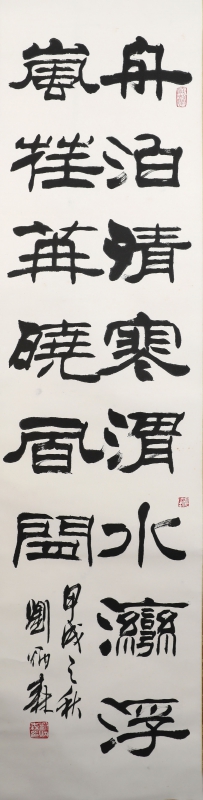 舟泊清寒渭水灣浮
嵐荏苒曉風
甲戌之秋
劉炳森